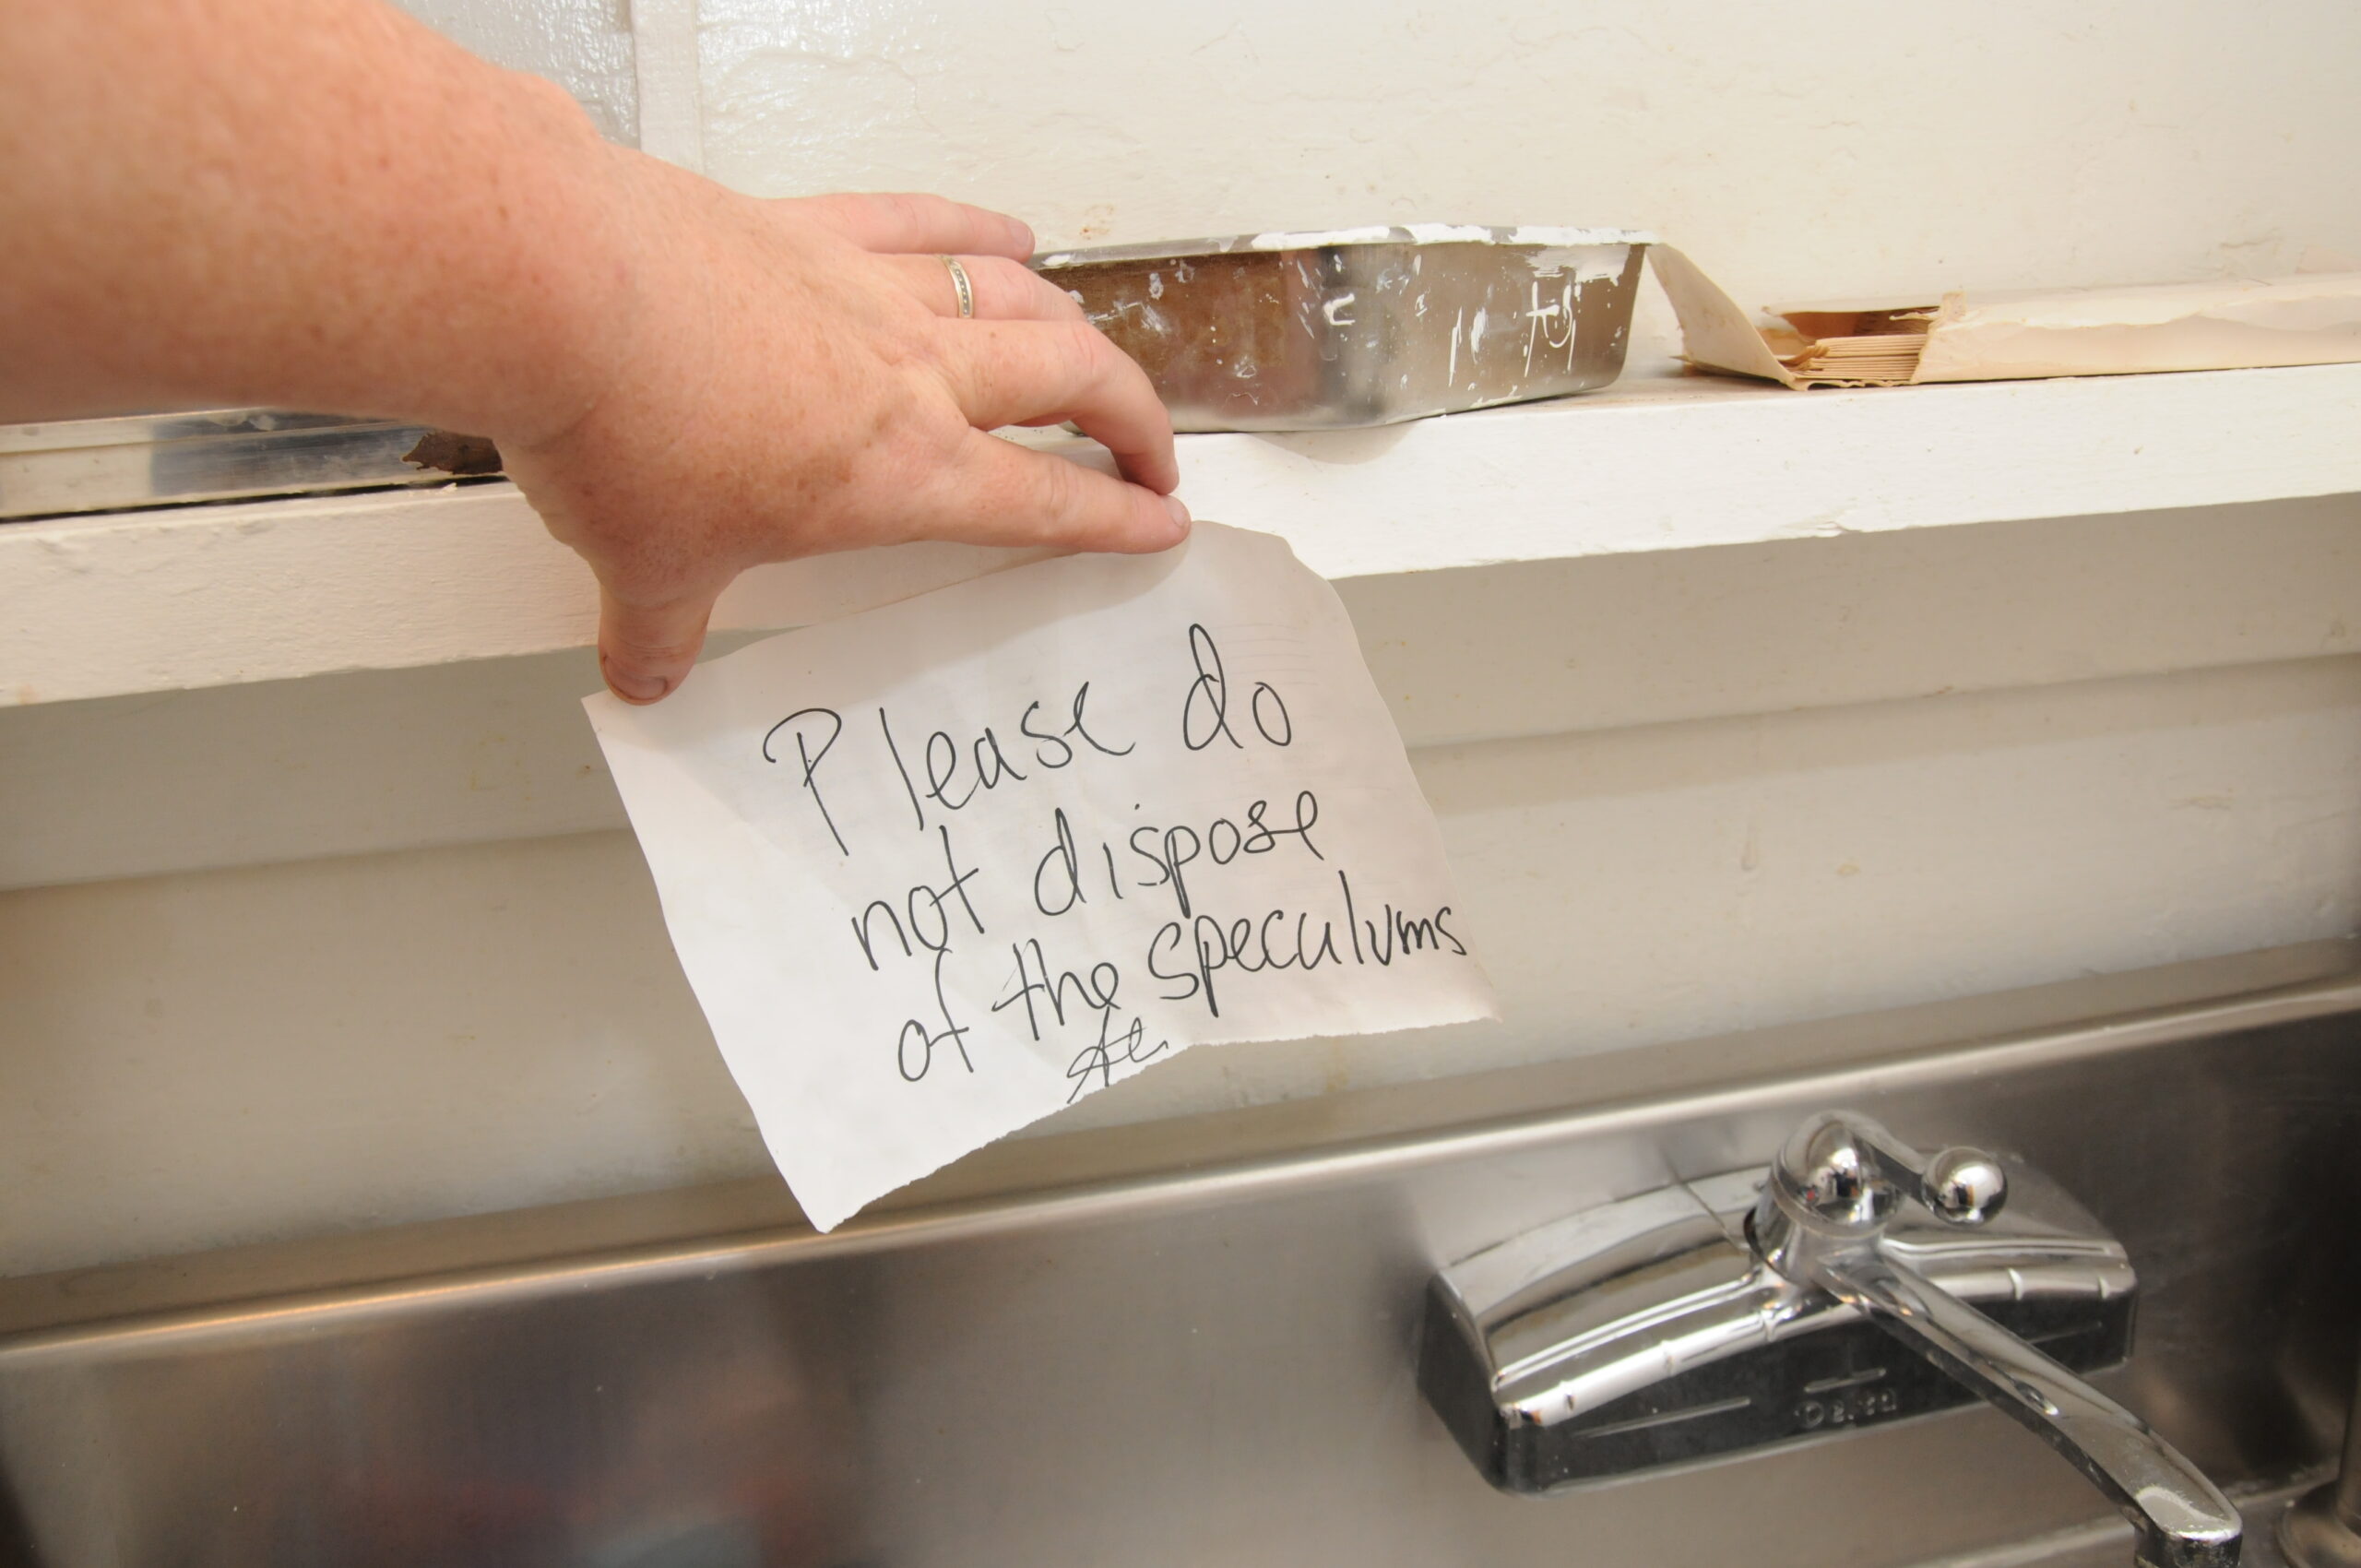 Please do
not dispose
of the speculums
Delta